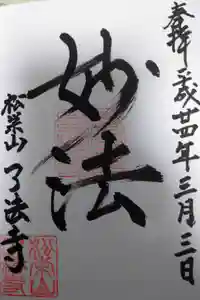 奉拝 平成廿四年三月三日
妙法
松栄山
了法寺